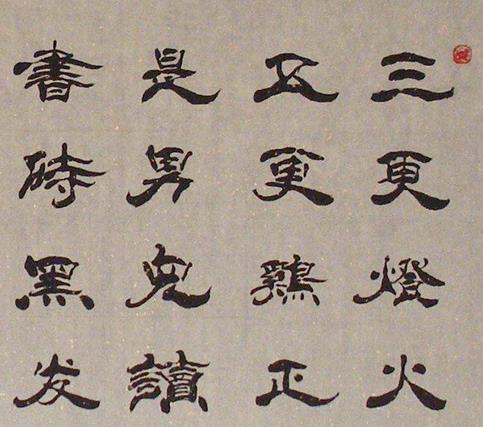 三更燈火
五更鷄正
是男児讀
書時黑发